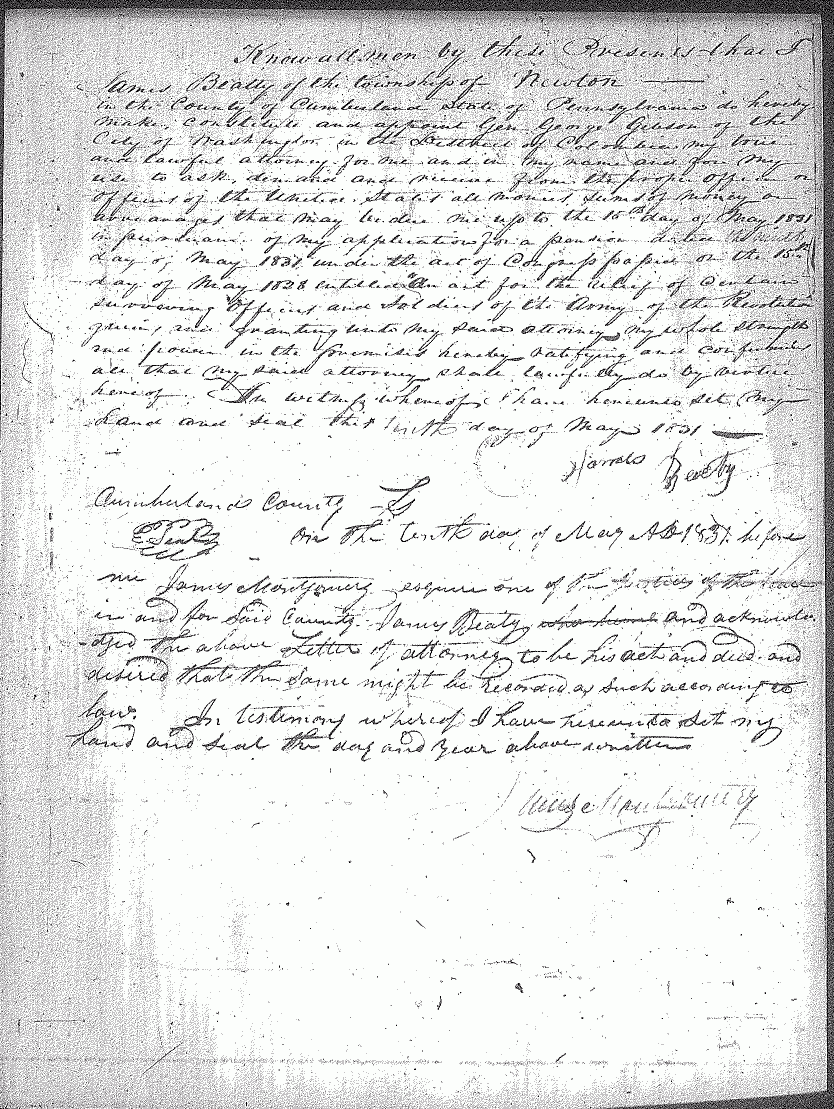 Know all men by these Presents that I
James Beatty of the township of Newton
in the County of Cumberland State of Pennsylvania do hereby
make, constitute and appoint Gen George Gibson of the
City of Washington in the District of Columbia my true
and lawful attorney for me and in my name and for my
use to ask, demand and receive from the proper officer or
officers of the United States all monies, sums of money or
arrearages that may be due me up to the 15th day of May 1831
in pursuance of my application for a pension dated the tenth
day of May 1831 under the act of Congress passed on the 15th
day of May 1828 entitled "An act for the relief of Certain
surviving Officers and Soldiers of the Army of the Revolution
giving and granting unto my said attorney my whole strength
and power in the premises hereby ratifying and confirming
all that my said attorney shall lawfully do by virtue
hereof. In witness whereof I have hereunto set my
hand and seal this tenth day of May 1831
James Beaty
Cumberland County Ss
Seal On the tenth day of May AD 1831 before
me James Montgomery esquire one of the Justices of the Peace
in and for said County James Beaty who hume and acknowle
-dged the above Letter of attorney to be his act and deed and
desired that the same might be Recorded as Such according to
law. In testimony whereof I have hereunto set my
hand and Seal the day and year above written
James Montgomery